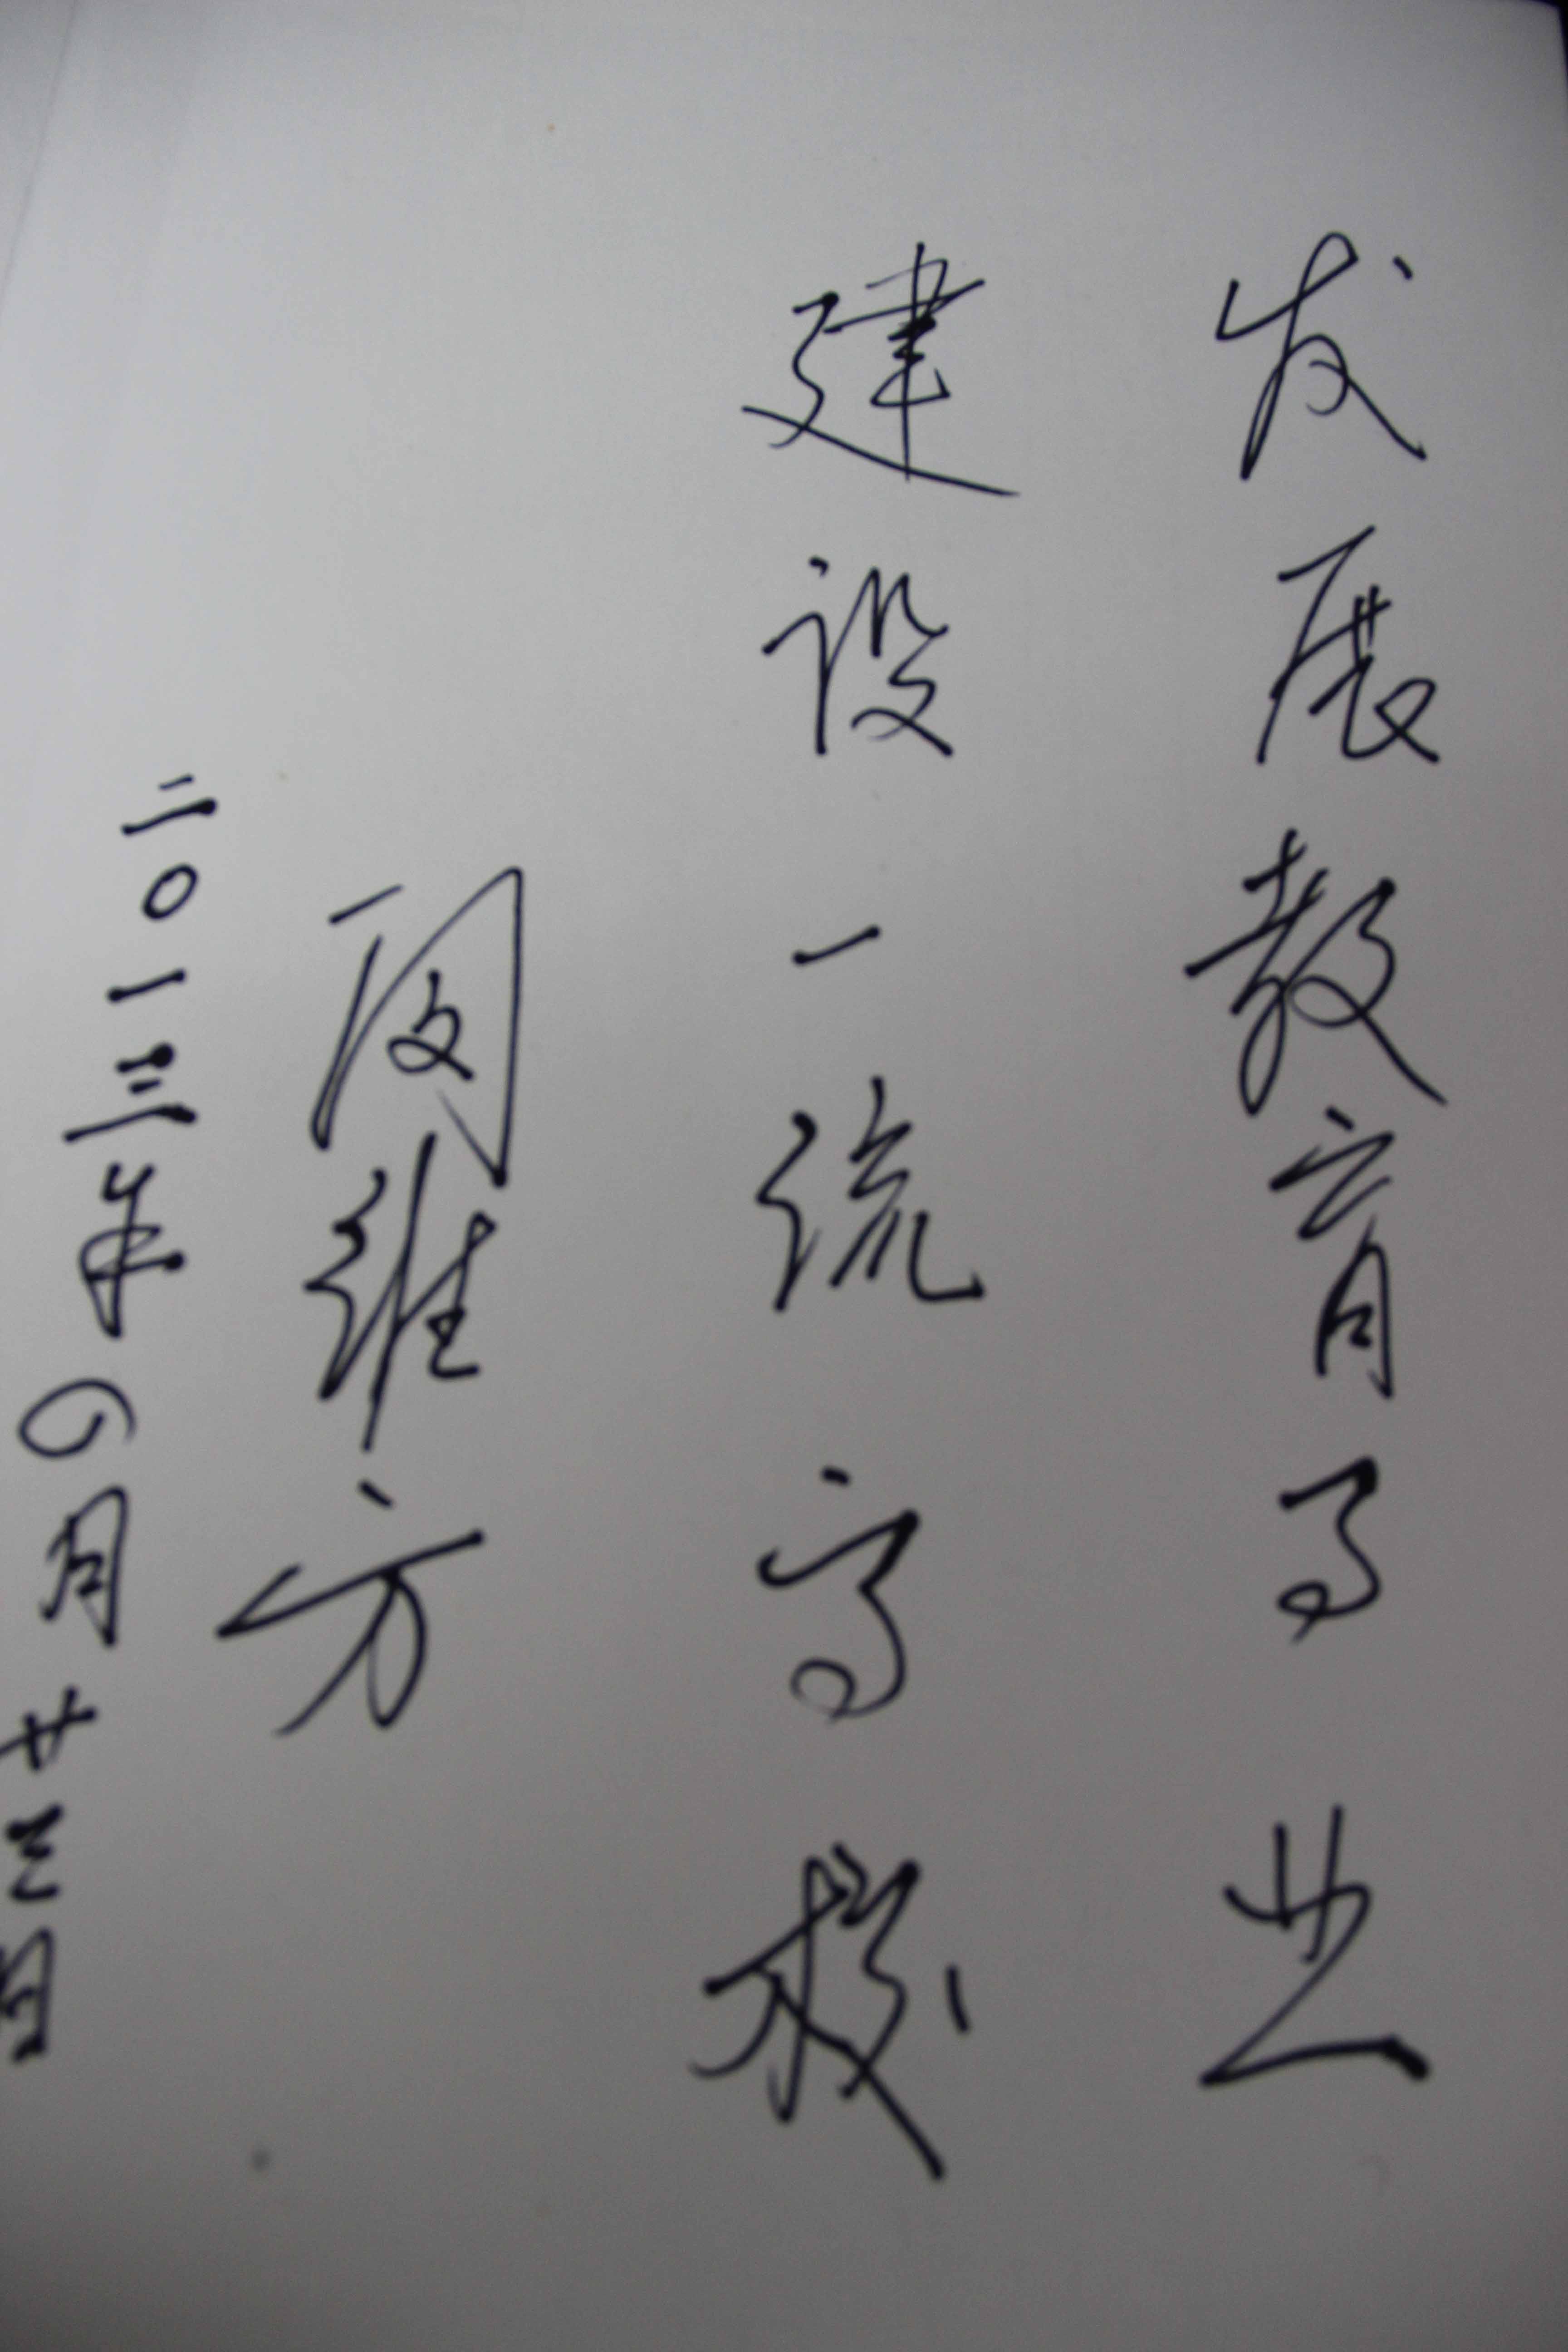 发展教育事业
建设一流高校
闵维方
二〇一三年四月廿三日